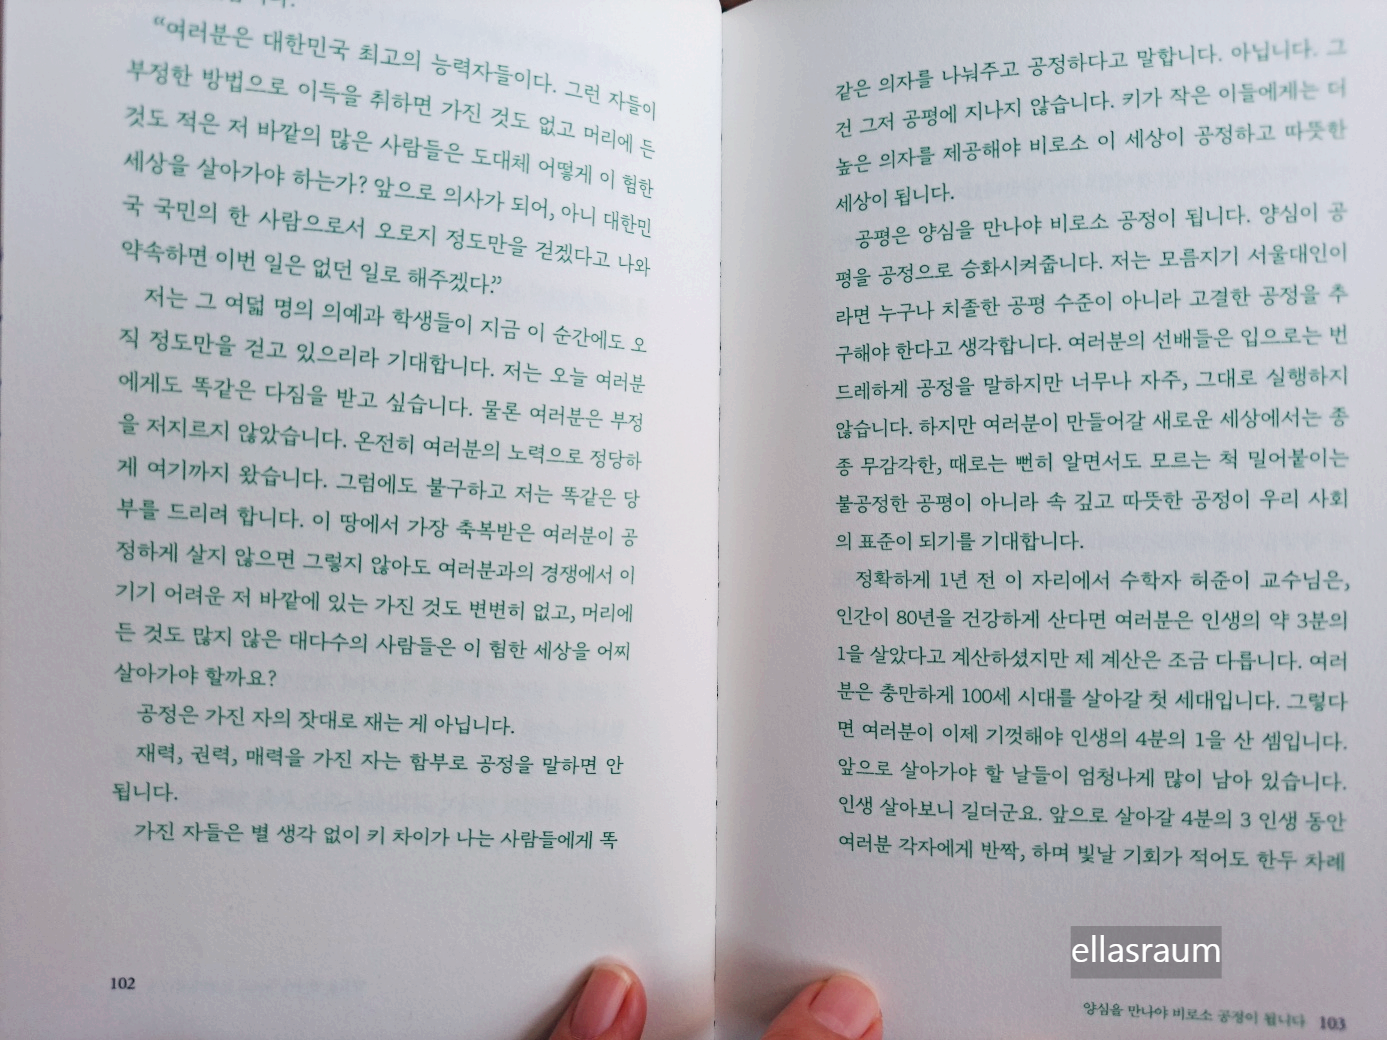 “여러분은 대한민국 최고의 능력자들이다. 그런 자들이
부정한 방법으로 이득을 취하면 가진 것도 없고 머리에 든
것도 적은 저 바깥의 많은 사람들은 도대체 어떻게 이 험한
세상을 살아가야 하는가? 앞으로 의사가 되어, 아니 대한민
국 국민의 한 사람으로서 오로지 정도만을 걷겠다고 나와
약속하면 이번 일은 없던 일로 해주겠다.”
저는 그 여덟 명의 의예과 학생들이 지금 이 순간에도 오
직 정도만을 걷고 있으리라 기대합니다. 저는 오늘 여러분
에게도 똑같은 다짐을 받고 싶습니다. 물론 여러분은 부정
을 저지르지 않았습니다. 온전히 여러분의 노력으로 정당하
게 여기까지 왔습니다. 그럼에도 불구하고 저는 똑같은 당
부를 드리려 합니다. 이 땅에서 가장 축복받은 여러분이 공
정하게 살지 않으면 그렇지 않아도 여러분과의 경쟁에서 이
기기 어려운 저 바깥에 있는 가진 것도 변변히 없고, 머리에
든 것도 많지 않은 대다수의 사람들은 이 험한 세상을 어찌
살아가야 할까요?
공정은 가진 자의 잣대로 재는 게 아닙니다.
재력, 권력, 매력을 가진 자는 함부로 공정을 말하면 안
됩니다.
가진 자들은 별 생각 없이 키 차이가 나는 사람들에게 똑
102
같은 의자를 나눠주고 공정하다고 말합니다. 아닙니다. 그
건 그저 공평에 지나지 않습니다. 키가 작은 이들에게는 더
높은 의자를 제공해야 비로소 이 세상이 공정하고 따뜻한
세상이 됩니다.
공평은 양심을 만나야 비로소 공정이 됩니다. 양심이 공
평을 공정으로 승화시켜줍니다. 저는 모름지기 서울대인이
라면 누구나 치졸한 공평 수준이 아니라 고결한 공정을 추
구해야 한다고 생각합니다. 여러분의 선배들은 입으로는 번
드레하게 공정을 말하지만 너무나 자주, 그대로 실행하지
않습니다. 하지만 여러분이 만들어갈 새로운 세상에서는 종
종 무감각한, 때로는 뻔히 알면서도 모르는 척 밀어붙이는
불공정한 공평이 아니라 속 깊고 따뜻한 공정이 우리 사회
의 표준이 되기를 기대합니다.
정확하게 1년 전 이 자리에서 수학자 허준이 교수님은,
인간이 80년을 건강하게 산다면 여러분은 인생의 약 3분의
1을 살았다고 계산하셨지만 제 계산은 조금 다릅니다. 여러
분은 충만하게 100세 시대를 살아갈 첫 세대입니다. 그렇다
면 여러분이 이제 기껏해야 인생의 4분의 1을 산 셈입니다.
앞으로 살아가야 할 날들이 엄청나게 많이 남아 있습니다.
인생 살아보니 길더군요. 앞으로 살아갈 4분의 3 인생 동안
여러분 각자에게 반짝, 하며 빛날 기회가 적어도 한두 차례
ellasraum
양심을 만나야 비로소 공정이 됩니다 103